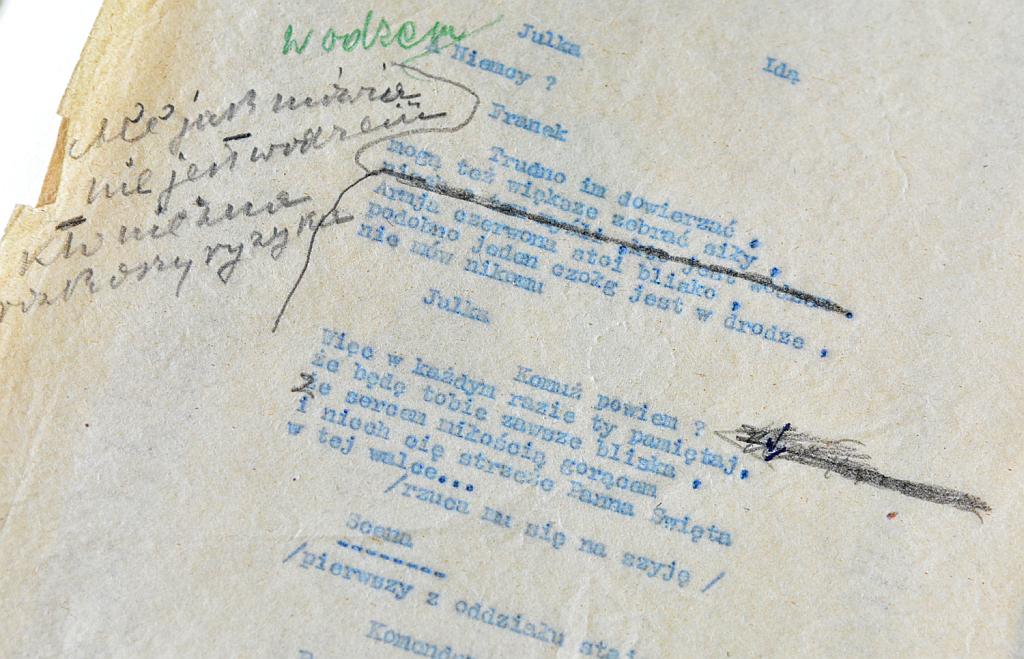 wodzem
Julka
Ida
A Niemcy ?
Ale jak mówię
nie jest wodzem
kto nie zna
rozkoszy ryzyka
Franek
Trudno im dowierzać ,
mogą też większe zebrać siły ,
jest
Armja czerwona stoi blisko ,
podobno jeden czołg jest w drodze ,
nie mów nikomu
Julka
Komuż powiem ?
Więc w każdym razie ty pamiętaj,
że będę tobie zawsze bliska ,
że sercem miłością gorącem
i niech cię strzeże Panna Święta
w tej walce...
/rzuca mu się na szyję /
Scena
--------
/pierwszy z oddziału